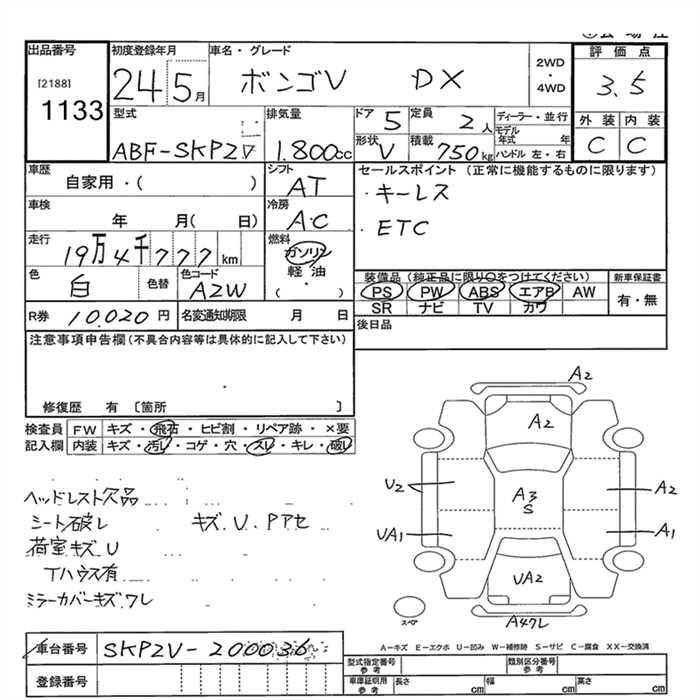 出品番号
[2188]
1133
初度登録年月
24 5月
車名・グレード
ボンゴV DX
2WD
・
4WD
評価点
3.5
外装 内装
C C
型式
ABF-SKP2V
排気量
1.800cc
ドア 5
定員 2人
ディーラー・並行
モデル
年式 年
ハンドル 左・右
形状 V
積載 750kg
車歴
自家用・( )
シフト
AT
セールスポイント (正常に機能するものに限ります)
・キーレス
・ETC
車検
年 月( 日)
冷房
A・C
走行
19万4千777km
燃料
ガソリン
軽油
( ・ )
色
白
色替
色コード
A2W
装備品 (純正品に限り○をつけてください)
PS PW ABS エアB AW
SR ナビ TV カワ
新車保証書
有・無
R券 10,020円
名変通知期限 月 日
後日品
注意事項申告欄(不具合内容等は具体的に記入して下さい)
修復歴 有 〔箇所 〕
検査員
記入欄
FW キズ・飛石・ヒビ割・リペア跡・×要
内装 キズ・汚レ・コゲ・穴・スレ・キレ・破レ
ヘッドレスト欠品
シート破レ キズ、U、Pアセ
荷室キズ、U
Tハウス有
ミラーカバーキズ、ワレ
A2
A2
U2
A3
S
A2
UA1
A1
UA2
スペア
A4ワレ
A-キズ E-エクボ U-凹み W-補修跡 S-サビ C-腐食 XX-交換済
車台番号
SKP2V-200036
登録番号
型式指定番号
参考
類別区分番号
参考
車庫証明用
参考
長さ cm 幅 cm 高さ cm